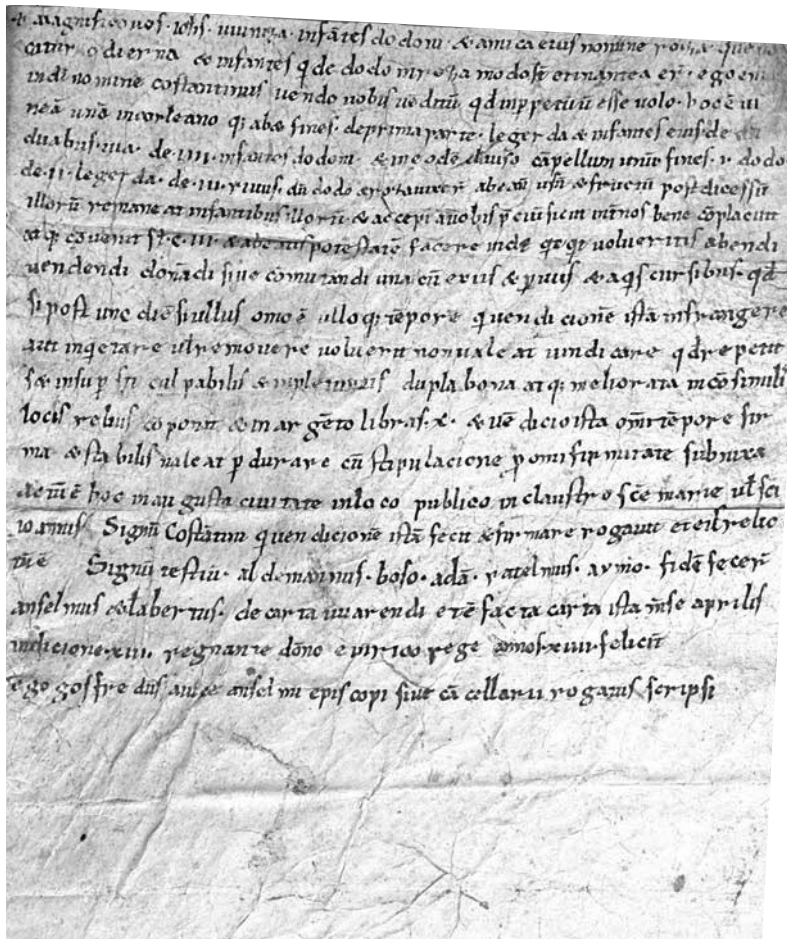 magnifico nos · ioh̅s · infa̅tes do doni · & amica eius nomine
& infantes q̅ de dodo ego
in di nomine costantinus uendo nobis ue̅ditu̅ q̅d inp̱petuu̅ esse uolo · hoc e̅ ui
nea̅ una̅ in corleano q; abe̅ fines · de prima parte · leger da & infantes eius de
duabus uia · de · iiii · infantes do doni · & in eode̅ clauso ca̅pellum unu̅ fines · i · do do
de · ii · leger da · de · iii · riuus · du̅ do do usu̅ & fructu̅ post dicessu̅
illoru̅ remane at infantibus illoru̅ & accepi a uobis p̱ciu̅ sicut int̅ nos bene co̅placuit
at q; co̅uenit sł · c · iii · & abeatis potestate̅ facere inde q̅t q̅t uolueritis abendi
uendendi dona̅di siue comutandi una cu̅ exius & p̱uius & aq̅s cursibus · q̅d
si post unc die̅ si ullus omo e̅ ullo q; te̅pore q̅ uen di cione̅ ista̅ infrangere
aut inq̅etare uł remouere uoluerit non uale at uindicare q̅d repetit
s& insup̱ sit culpabilis & inpleturus dupla bona at q; meliorata in co̅simili
locis rebus co ponat & in arge̅to libras · x · & ue̅ dicio ista om̅i te̅pore fir
ma & sta bilis uale at p̱ durare cu̅ stipulacione p̱ omi firmitate subnixa
actu̅ e̅ hoc in au gusta ciuitate in lo co publico in claustro sc̅e marie uł sci
io annis Signu̅ Costa̅tini q̅ uen dicione̅ ista̅ fecit & firmare rogauit et ei relic
tu̅ e̅ Signu̅ testiu̅ · al demannus · boso · ada̅ · ratelmus · aymo · fide̅ fecer̅
anselmus & la̅bertus · de carta uuarendi et e̅ facta carta ista m̅se aprilis
indicione · xiii · regnante do̅no e nirico rege annos · xiiii · felicit̅
ego gosfre dus anselmi episcopi siue ca̅ cellarii rogatus scripsi